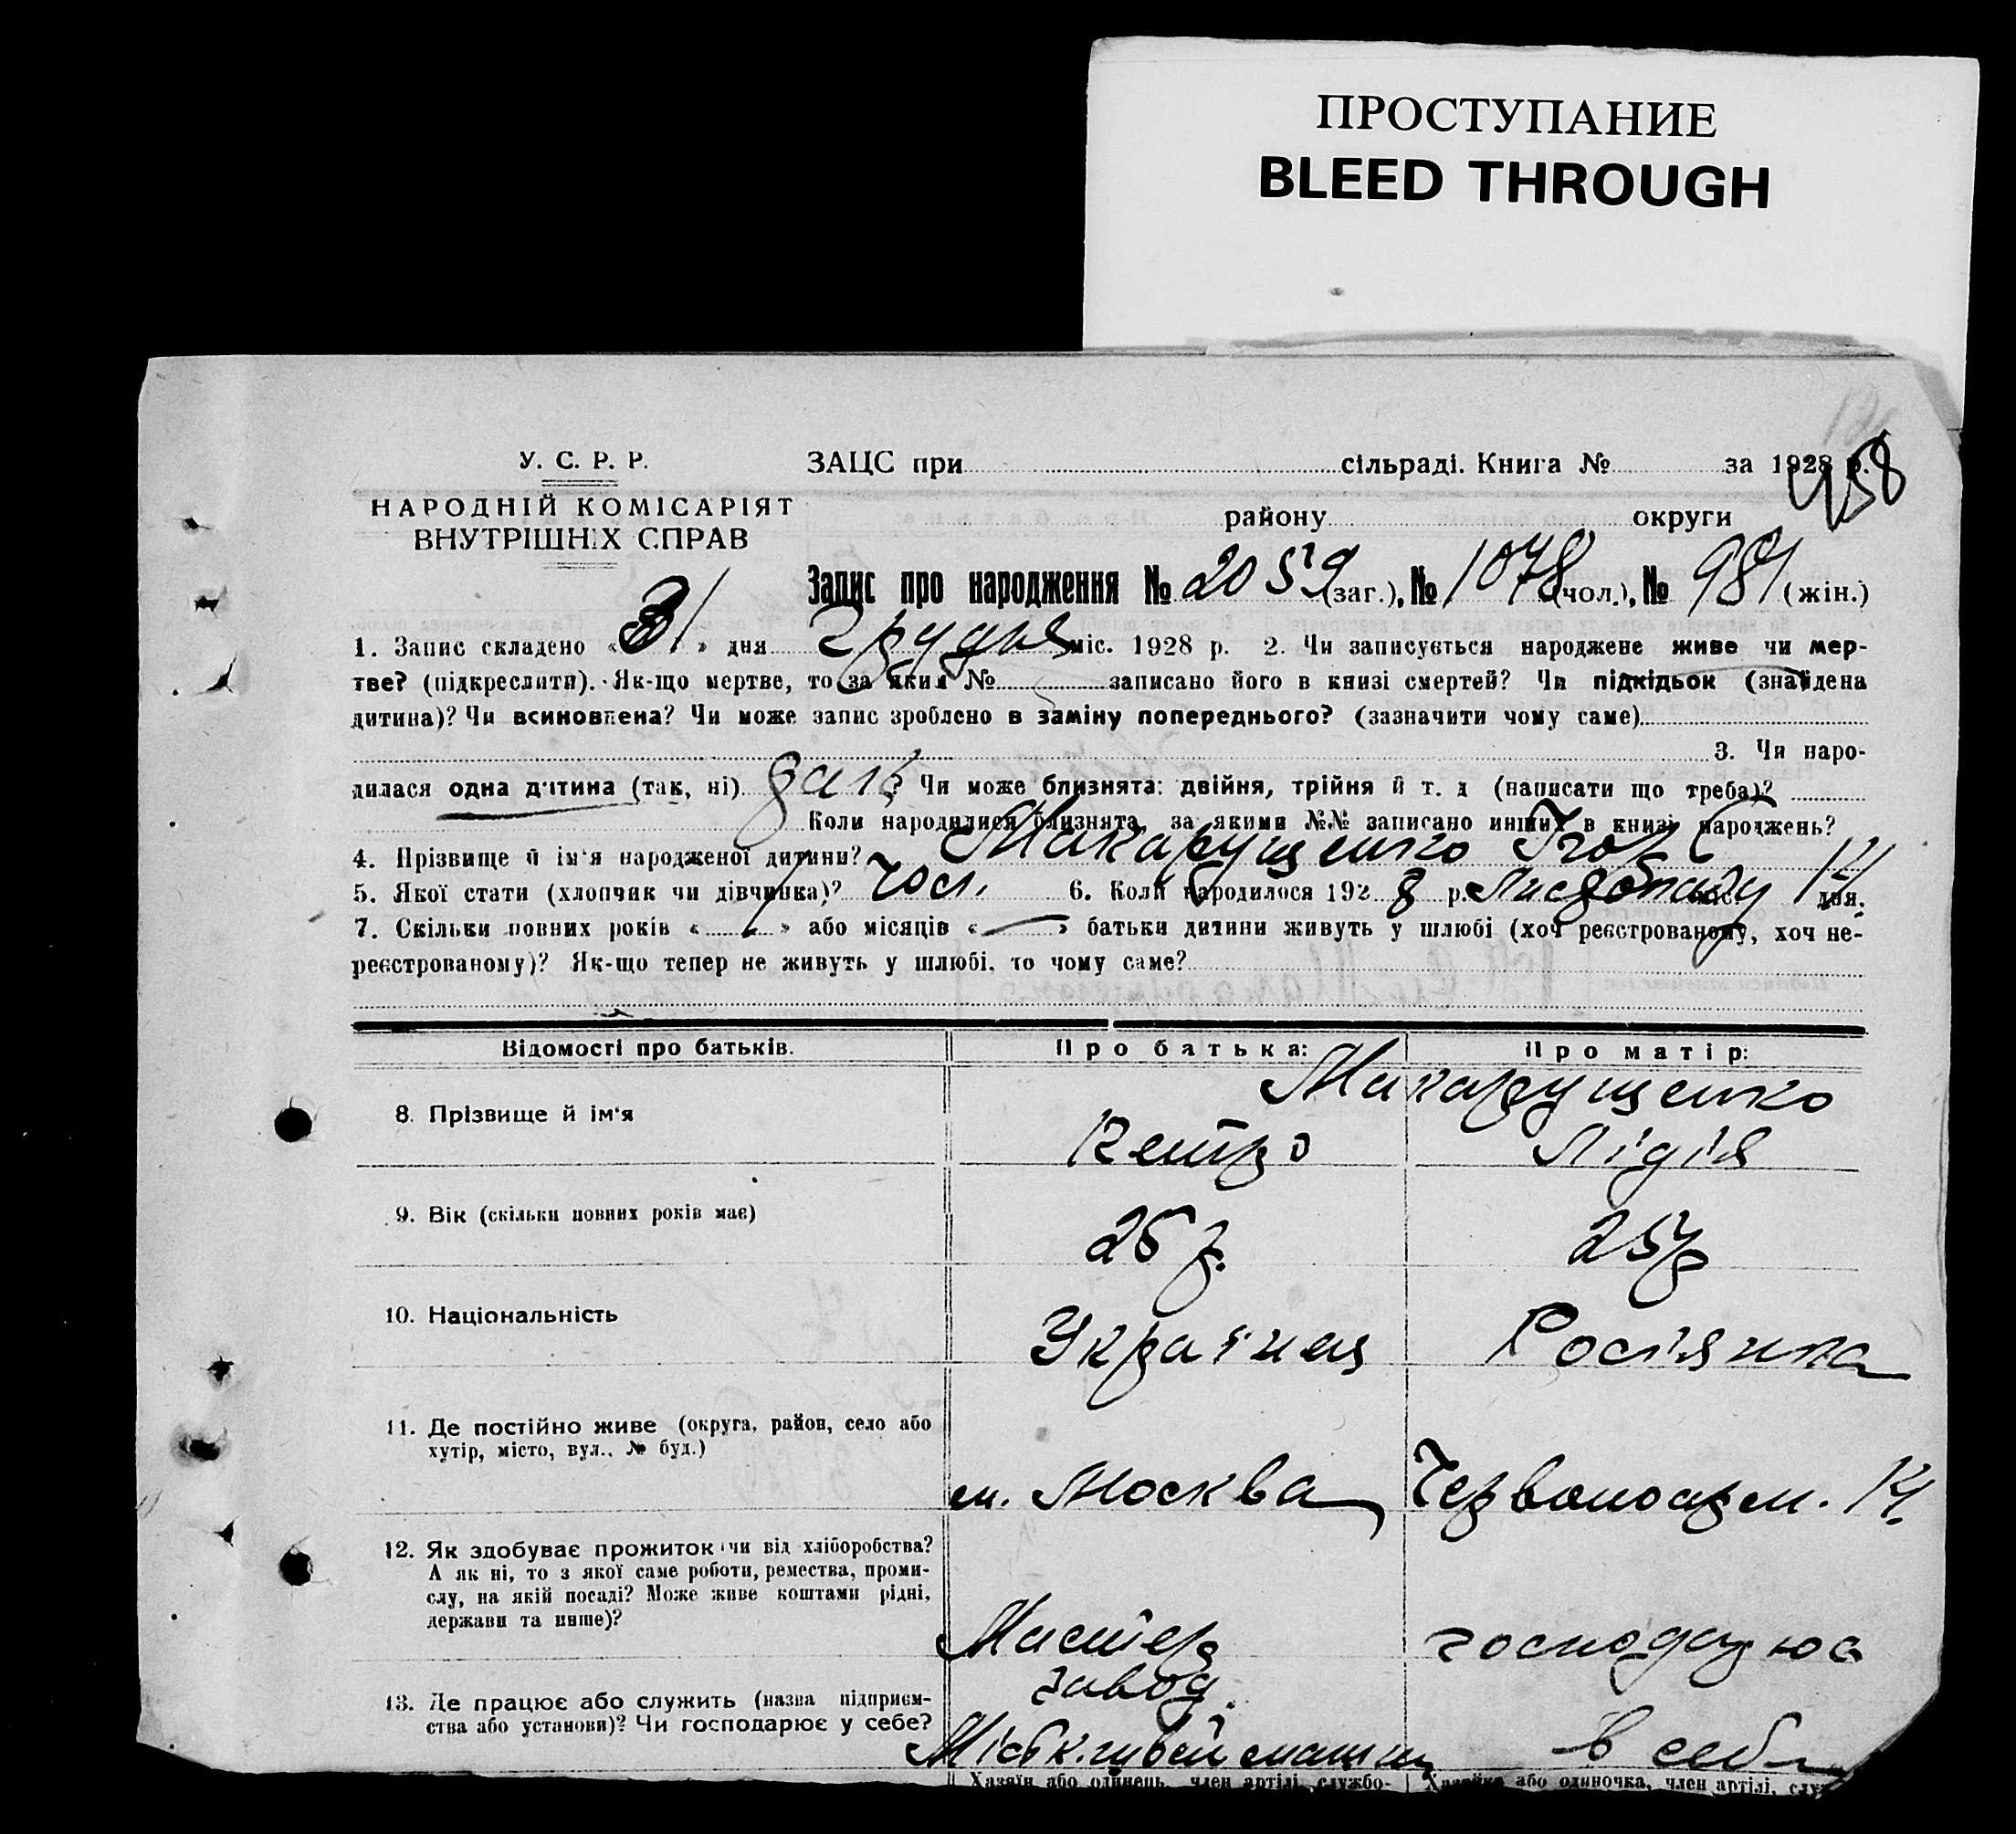 ПРОСТУПАНИЕ
BLEED THROUGH
У. С. Р. Р.
НАРОДНІЙ КОМІСАРІЯТ
ВНУТРІШНІХ СПРАВ
ЗАЦС при сільраді. Книга № за 1928 р.
958
району округи
Запис про народження № 2059 (заг.), № 1078 (чол.), № 981 (жін.)
1. Запис складено «31» дня Грудня міс. 1928 р. 2. Чи записується народжене живе чи мер-
тве? (підкреслити). Як-що мертве, то за яким № записано його в книзі смертей? Чи підкідьок (знайдена
дитина)? Чи всиновлена? Чи може запис зроблено в заміну попереднього? (зазначити чому саме)
3. Чи наро-
дилася одна дитина (так, ні) ? Чи може близнята: двійня, трійня й т. д (написати що треба)?
Коли народилися близнята, за якими №№ записано инших в книзі народжень?
4. Прізвище й ім'я народженої дитини? Макарущенко
5. Якої стати (хлопчик чи дівчинка)? чол. 6. Коли народилося 1928 р. Листопаду 14 дня.
7. Скільки повних років « » або місяців « » батьки дитини живуть у шлюбі (хоч реєстрованому, хоч не-
реєстрованому)? Як-що тепер не живуть у шлюбі, то чому саме?
Відомості про батьків. Про батька: Про матір:
Макарущенко
8. Прізвище й ім'я Петро Лідія
9. Вік (скільки повних років має) 25 р. 25 р
10. Національність Українец Росіянка
11. Де постійно живе (округа, район, село або
хутір, місто, вул., № буд.)
м. Москва, Червоноарм. 14.
12. Як здобуває прожиток чи від хліборобства?
А як ні, то з якої саме роботи, ремества, проми-
слу, на якій посаді? Може живе коштами рідні,
держави та инше)?
Мастер господарює
завод.
13. Де працює або служить (назва підприєм-
ства або установи)? Чи господарює у себе?
швей машин в себе
Хазяїн або одинець, член артілі, службо- Хазяйка або одиночка, член артілі, служ